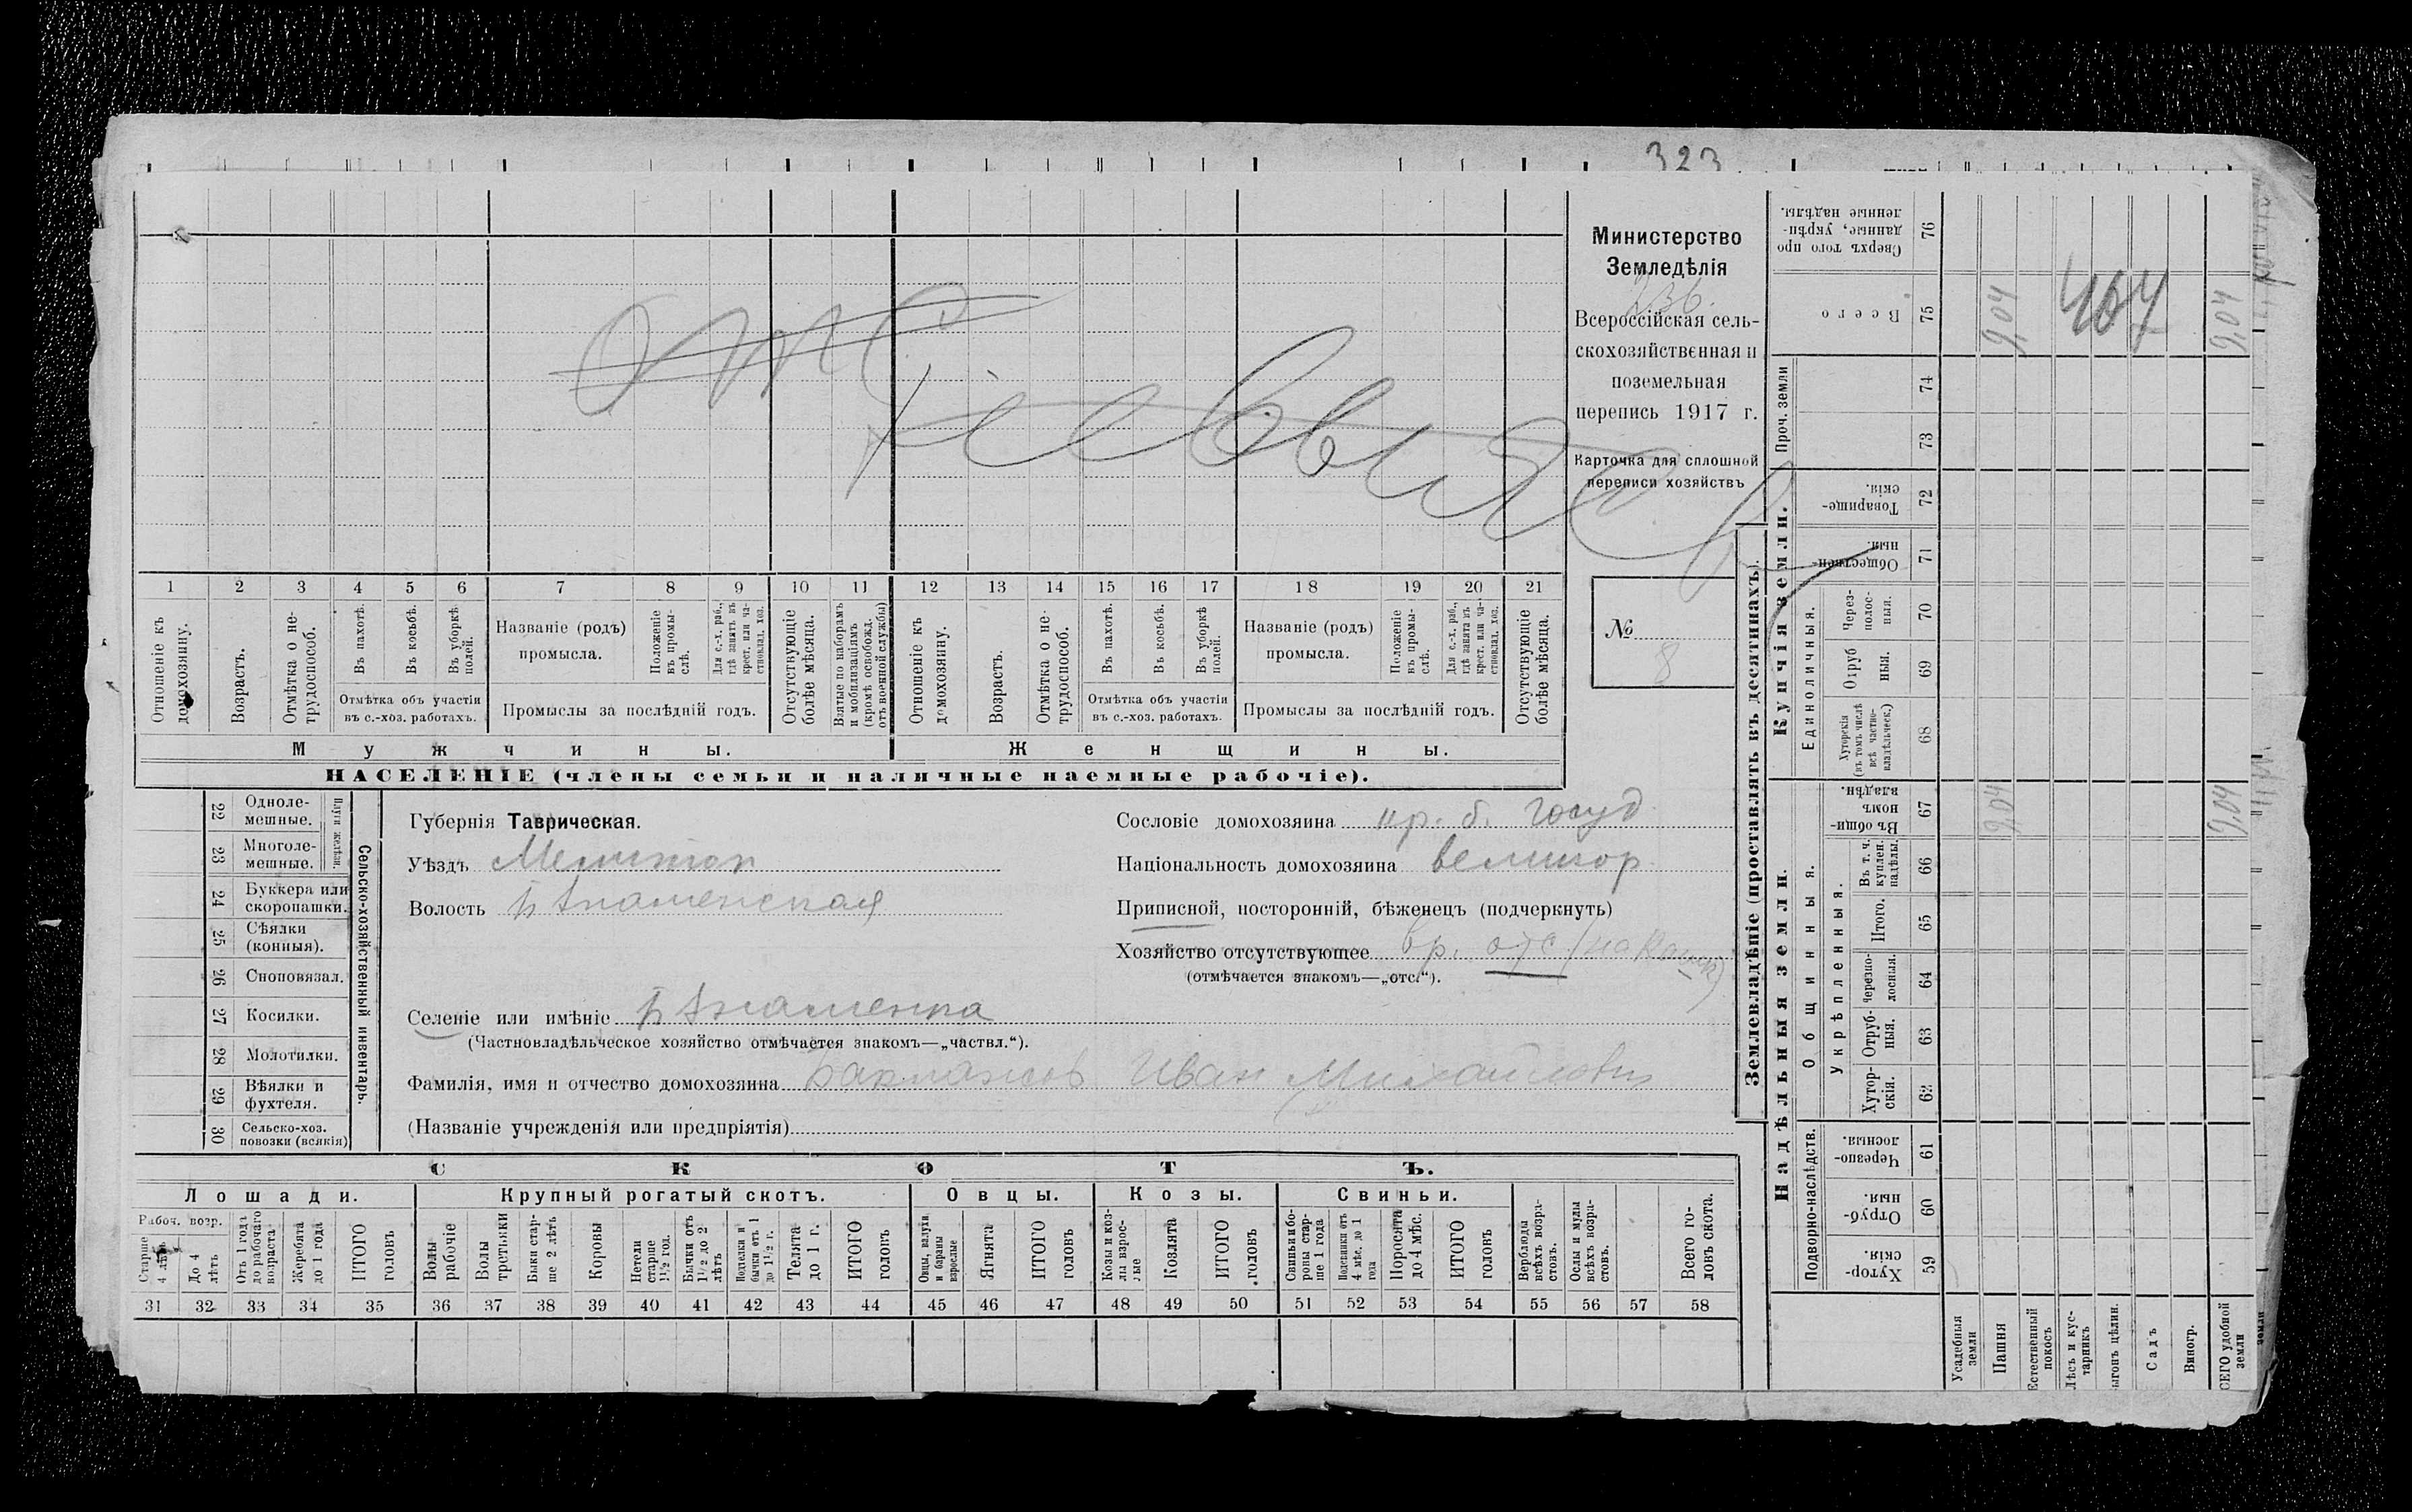 323
Министерство
Земледѣлія
236.
Всероссійская сель-
скохозяйственная и
поземельная
перепись 1917 г.
Карточка для сплошной
переписи хозяйствъ
№
8
1 2 3 4 5 6 7 8 9 10 11 12 13 14 15 16 17 18 19 20 21
Отношеніе къ домохозяину.
Возрастъ.
Отмѣтка о не-трудоспособ.
Въ пахотѣ.
Въ косьбѣ.
Въ уборкѣ полей.
Отмѣтка объ участіи
въ с.-хоз. работахъ.
Названіе (родъ)
промысла.
Положеніе въ промы-слѣ.
Для с.-х. раб., гдѣ занятъ въ крест. или ча-стновлад. хоз.
Промыслы за послѣдній годъ.
Отсутствующіе болѣе мѣсяца.
Взятые по наборамъ и мобилизаціямъ (кромѣ освобожд. отъ военной службы)
Отношеніе къ домохозяину.
Возрастъ.
Отмѣтка о не-трудоспособ.
Въ пахотѣ.
Въ косьбѣ.
Въ уборкѣ полей.
Отмѣтка объ участіи
въ с.-хоз. работахъ.
Названіе (родъ)
промысла.
Положеніе въ промы-слѣ.
Для с.-х. раб., гдѣ занята въ крест. или ча-стновлад. хоз.
Промыслы за послѣдній годъ.
Отсутствующіе болѣе мѣсяца.
Мужчины.
Женщины.
НАСЕЛЕНІЕ (члены семьи и наличные наемные рабочіе).
22 Одноле-мешные.
23 Многоле-мешные.
Плуги желѣзн.
24 Буккера или скоропашки.
25 Сѣялки (конныя).
26 Сноповязал.
27 Косилки.
28 Молотилки.
29 Вѣялки и фухтеля.
30 Сельско-хоз. повозки (всякія)
Сельско-хозяйственный инвентарь.
Губернія Таврическая.
Уѣздъ Мелитоп
Волость Б Знаменская
Сословіе домохозяина кр. б. госуд
Національность домохозяина великор.
Приписной, посторонній, бѣженецъ (подчеркнуть)
Хозяйство отсутствующее вр. отс
(отмѣчается знакомъ—„отс.“).
Селеніе или имѣніе Б Знаменка
(Частновладѣльческое хозяйство отмѣчается знакомъ—„частвл.“).
Фамилія, имя и отчество домохозяина Иван Михайлович
(Названіе учрежденія или предпріятія)
СКОТЪ.
Лошади.
Крупный рогатый скотъ.
Овцы.
Козы.
Свиньи.
Рабоч. возр.
Старше 4 лѣтъ
До 4 лѣтъ
Отъ 1 года до рабочаго возраста
Жеребята до 1 года
ИТОГО головъ
Волы рабочіе
Волы третьяки
Быки стар-ше 2 лѣтъ
Коровы
Нетели старше 1½ год.
Бычки отъ 1½ до 2 лѣтъ
Подтелки и бычки отъ 1 до 1½ г.
Телята до 1 г.
ИТОГО головъ
Овцы, валухи и бараны взрослые
Ягнята
ИТОГО головъ
Козы и коз-лы взрос-лые
Козлята
ИТОГО головъ
Свиньи и бо-ровы стар-ше 1 года
Подсвинки отъ 4 мѣс. до 1 года
Поросята до 4 мѣс.
ИТОГО головъ
Верблюды всѣхъ возра-стовъ.
Ослы и мулы всѣхъ возра-стовъ.
Всего го-ловъ скота.
31 32 33 34 35 36 37 38 39 40 41 42 43 44 45 46 47 48 49 50 51 52 53 54 55 56 57 58
Землевладѣніе (проставлять въ десятинахъ).
Надѣльныя земли.
Купчія земли.
Проч. земли
Подворно-наслѣдств.
Общинныя.
Укрѣпленныя.
Единоличныя.
Хутор-скія. 59
Отруб-ныя. 60
Черезпо-лосныя. 61
Хутор-скія. 62
Отруб-ныя. 63
Черезпо-лосныя. 64
Итого. 65
Въ т. ч. куплен. надѣлы. 66
Въ общи-номъ владѣн. 67
Хуторскія (въ томъ числѣ всѣ частно-владѣльческ.) 68
Отруб ныя. 69
Через-полос-ныя. 70
Обществен-ныя. 71
Товарище-скія. 72
73
74
Всего 75
Сверхъ того про данные, укрѣп-ленные надѣлы. 76
Усадебныя земли
Пашня
9,04
9,04
Естественный покосъ
Лѣсъ и кус-тарникъ
ыгонъ цѣлин.
Садъ
Виногр.
СЕГО удобной земли
9,04
9,04
земли